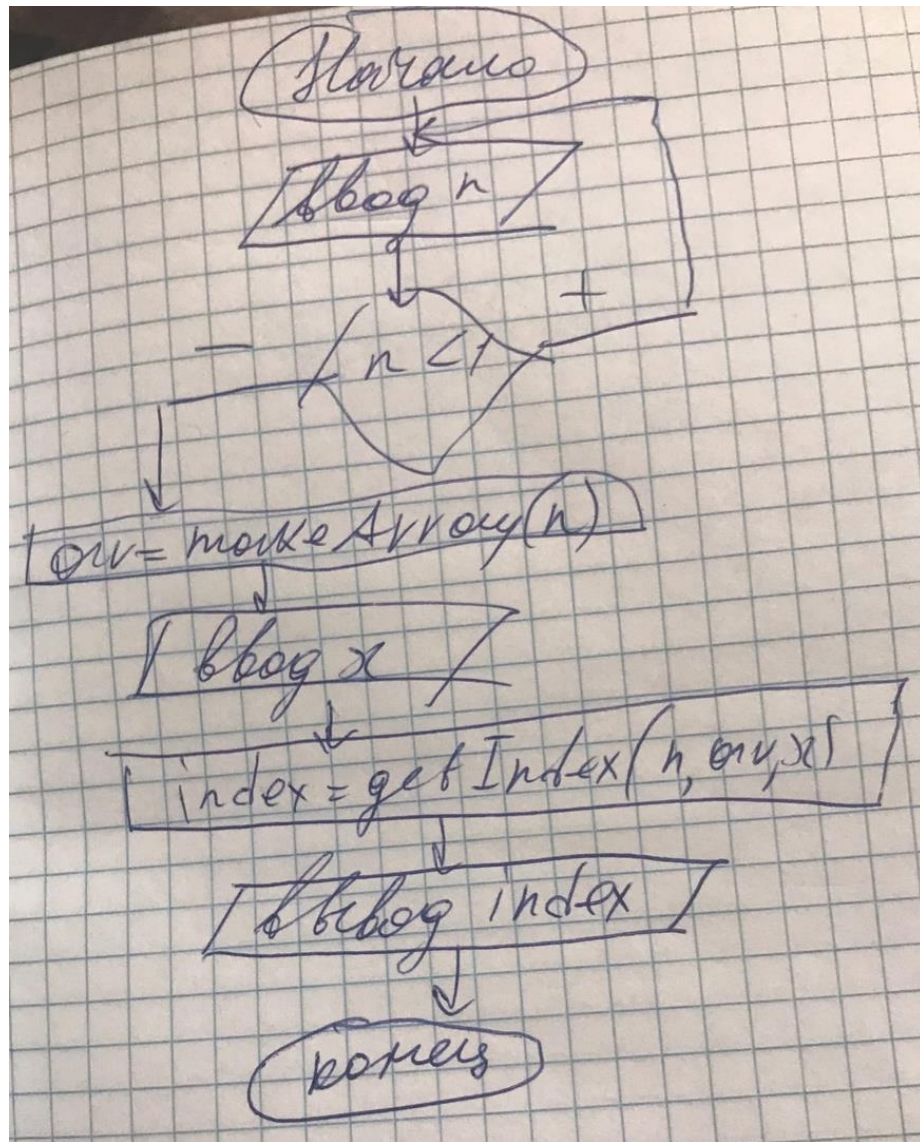 Начало
ввод n
n < 1
+
−
arr = makeArray(n)
ввод x
index = getIndex(n, arr, x)
вывод index
конец